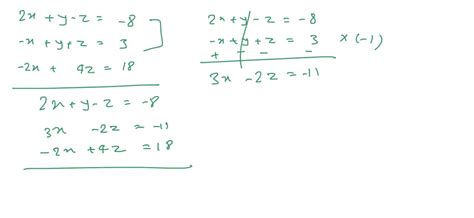 2x + y - z = -8
-x + y + z = 3
-2x + 4z = 18
2x + y - z = -8
3x - 2z = -11
-2x + 4z = 18
2x + y - z = -8
-x + y + z = 3 × (-1)
+ - - -
3x - 2z = -11